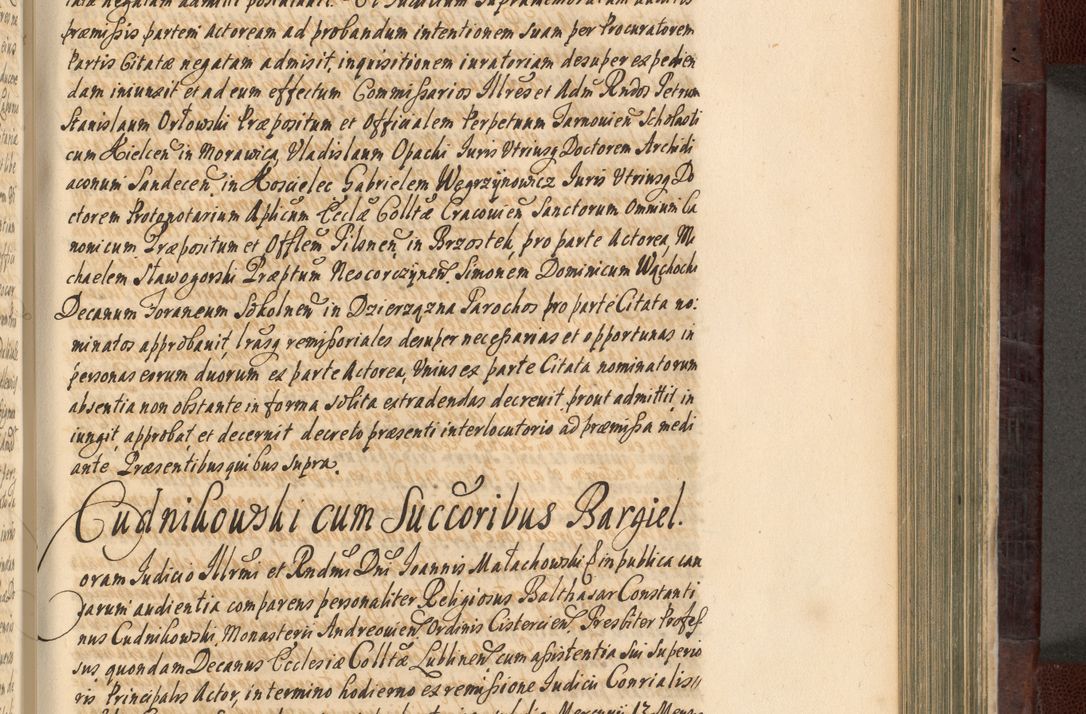 præmissis partem actoream ad probandum intentionem suam per Procuratorem
Partis Citatæ negatam admisit, inquisitionem iuratoriam desuper expedien
dam iniunxit et ad eum effectum Commissarios Illres et Adm Rndos Petrum
Stanislaum Orłowski Præpositum et Officialem Perpetuum Tarnovien Scholasti
cum Kielcen in Morawica, Vladislaum Opachi Iuris Utriusq Doctorem Archidi
aconum Sandecen in Koscielec Gabrielem Węgrzynowicz Iuris Utriusq Do
ctorem Protonotarium Aplicum Ecclæ Colltæ Cracovien Sanctorum Omnium Ca
nonicum Præpositum et Offlem Pilsnen in Brzostek, pro parte Actorea, Mi
chaelem Sławogorski Præptum Neocorczynen. Simonem Dominicum Wąchocki
Decanum Foraneum Sokolnen in Dzierzązna Parochos pro parte Citata no:
minatos approbauit, lrasq remissoriales desuper necessarias et opportunas in
personas eorum duorum ex parte Actorea, Unius ex parte Citata nominatorum
absentia non obstante in forma solita extradendas decreuit, prout admittit, in
iungit, approbat et decernit decreto præsenti interlocutorio ad præmissa medi
ante Præsentibus quibus supra.
Cudnikowski cum Succoribus Bargiel.
oram Iudicio Illrmi et Rndmi Dni Ioannis Małachowski in publica cau
sarum audientia comparens personaliter Religiosus Balthasar Constanti
nus Cudnikowski, Monasterii Andreovien. Ordinis Cistercien. Presbiter Profes
sus quondam Decanus Ecclesiæ Colltæ Lublinen. cum assistentia sui Superio
ris Principalis Actor, in termino hodierno ex remissione Iudicii Conrialis
Mercurii 13 Mens